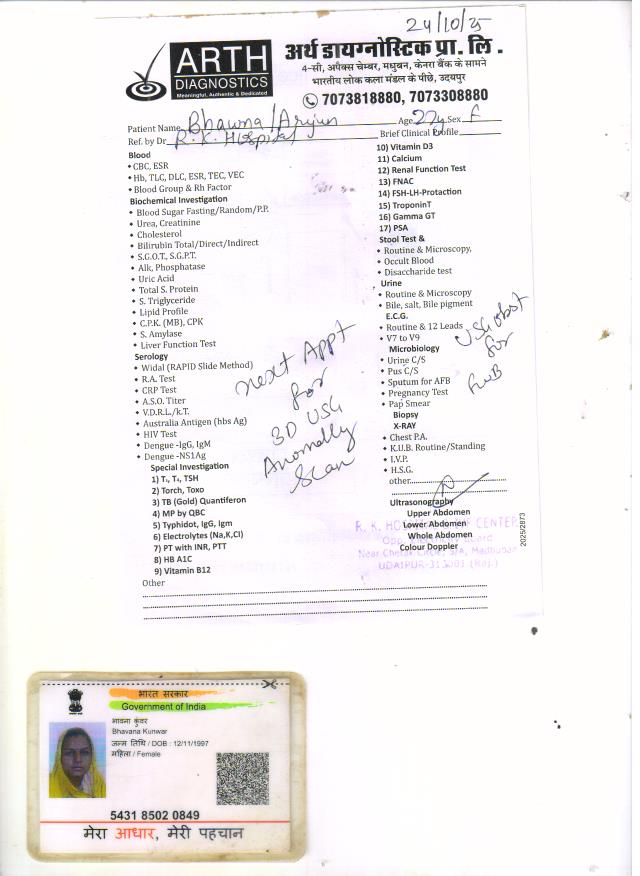 24/10/25
ARTH
DIAGNOSTICS
Meaningful, Authentic & Dedicated
अर्थ डायग्नोस्टिक प्रा. लि.
4-सी, अपैक्स चेम्बर, मधुबन, केनरा बैंक के सामने
भारतीय लोक कला मंडल के पीछे, उदयपुर
7073818880, 7073308880
Patient Name Bhawna/Arjun Age 27y Sex F
Ref. by Dr. R.K. Hospital Brief Clinical Profile
Blood
CBC, ESR
Hb, TLC, DLC, ESR, TEC, VEC
Blood Group & Rh Factor
Biochemical Investigation
Blood Sugar Fasting/Random/P.P.
Urea, Creatinine
Cholesterol
Bilirubin Total/Direct/Indirect
S.G.O.T., S.G.P.T.
Alk, Phosphatase
Uric Acid
Total S. Protein
S. Triglyceride
Lipid Profile
C.P.K. (MB), CPK
S. Amylase
Liver Function Test
Serology
Widal (RAPID Slide Method)
R.A. Test
CRP Test
A.S.O. Titer
V.D.R.L./k.T.
Australia Antigen (hbs Ag)
HIV Test
Dengue -IgG, IgM
Dengue -NS1Ag
Special Investigation
1) T₃, T₄, TSH
2) Torch, Toxo
3) TB (Gold) Quantiferon
4) MP by QBC
5) Typhidot, IgG, Igm
6) Electrolytes (Na,K,Cl)
7) PT with INR, PTT
8) HB A1C
9) Vitamin B12
Other
next Appt
for
3D USG
Anomally
Scan
10) Vitamin D3
11) Calcium
12) Renal Function Test
13) FNAC
14) FSH-LH-Protection
15) TroponinT
16) Gamma GT
17) PSA
Stool Test &
Routine & Microscopy,
Occult Blood
Disaccharide test
Urine
Routine & Microscopy
Bile, salt, Bile pigment
E.C.G.
Routine & 12 Leads
V7 to V9
Microbiology
Urine C/S
Pus C/S
Sputum for AFB
Pregnancy Test
Pap Smear
Biopsy
X-RAY
Chest P.A.
K.U.B. Routine/Standing
I.V.P.
H.S.G.
other
USG obst
for
FWB
Ultrasonography
Upper Abdomen
Lower Abdomen
Whole Abdomen
Colour Doppler
2025/2873
R. K. HO CENTER
Near Chetak Circle, 3/A, Madhuban
UDAIPUR-313001 (Raj.)
भारत सरकार
Government of India
भावना कुंवर
Bhavana Kunwar
जन्म तिथि / DOB : 12/11/1997
महिला / Female
5431 8502 0849
मेरा आधार, मेरी पहचान